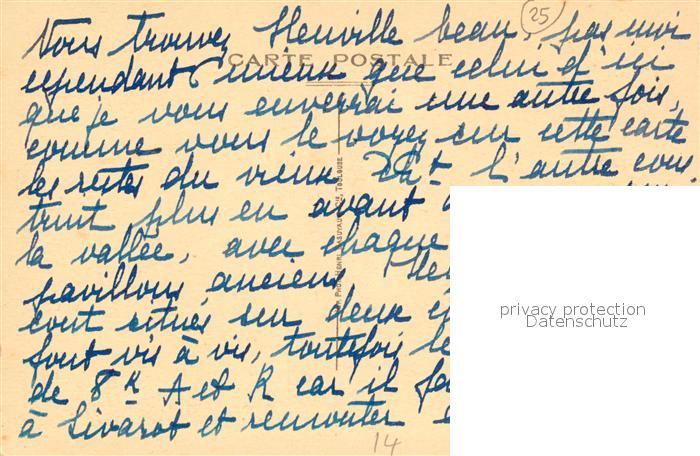 25
Vous trouvez Heuville beau, pas moi
CARTE POSTALE
cependant mieux que celui d'ici
que je vous enverrai une autre fois,
comme vous le voyez sur cette carte
les restes du vieux Cht l'autre cons
truit plus en avant
la vallée, avec chaque
pavillons anciens
sont situés sur deux
font vis à vis, toutefois le
de 8 K A et R car il fa
à Livarot et remonter
TOULOUSE
14
privacy protection
Datenschutz